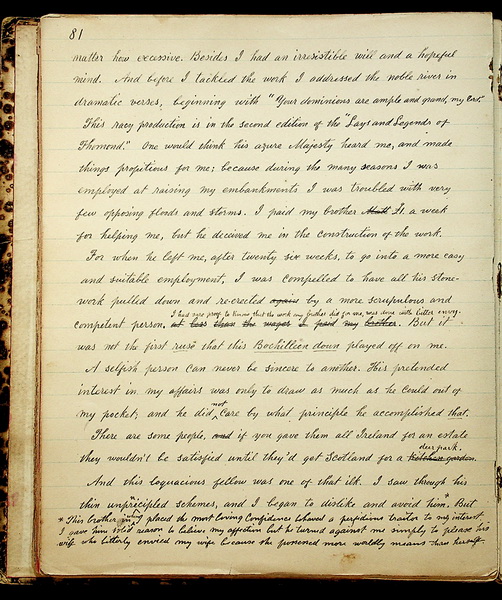 81
matter how excessive. Besides I had an irresistible will and a hopeful
mind. And before I tackled the work I addressed the noble river in
dramatic verses, beginning with "Your dominions are ample and grand, my Lord."
This racy production is in the second edition of the "Lays and Legends of
Thomond." One would think his azure Majesty heard me, and made
things propitious for me; because during the many seasons I was
employed at raising my embankments I was troubled with very
few opposing floods and storms. I paid my brother Matt £1. a week
for helping me, but he deceived me in the construction of the work.
For when he left me, after twenty six weeks, to go into a more easy
and suitable employment, I was compelled to have all his stone-
work pulled down and re-erected again by a more scrupulous and
I had sure proof to know that the work my brother did for me, was done with bitter envy.
competent person, at less than the wages I paid my brother. But it
was not the first ruse that this Bochilleen down played off on me.
A selfish person can never be sincere to another. His pretended
interest in my affairs was only to draw as much as he could out of
my pocket; and he did not care by what principle he accomplished that.
There are some people, and if you gave them all Ireland for an estate
deer park.
they wouldn't be satisfied until they'd get Scotland for a kitchen garden.
And this loquacious fellow was one of that ilk. I saw through his
thin unprincipled schemes, and I began to dislike and avoid him.* But
* This brother in whom I placed the most loving Confidence behaved a perfidious traitor to my interest.
I gave him solid reason to believe my affection but he turned against me simply to please his
wife who bitterly envied my wife because she possessed more worldly means than herself.